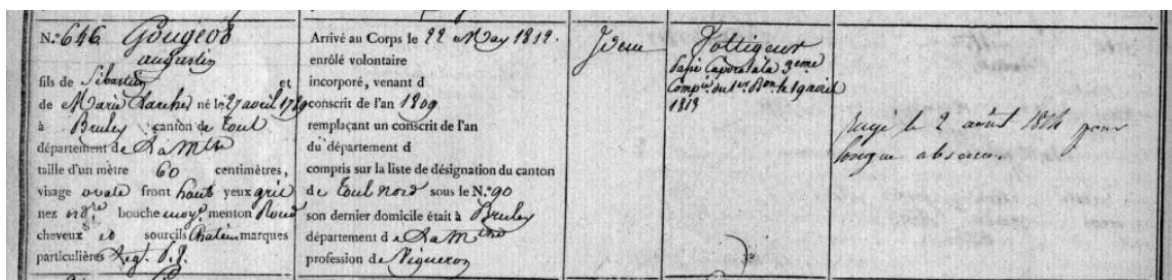 N.° 646 Gougeot
augustin
fils de Sibastien et
de Marie Lauché né le 27 avril 1789
à Bruley canton de Toul
département de La Mthe
taille d'un mètre 60 centimètres,
visage ovale front haut yeux gris
nez ordre bouche moye menton Rond
cheveux et sourcils Chatein marques
particulières
Arrivé au Corps le 22 May 1812.
enrôlé volontaire
incorporé, venant d
conscrit de l'an 1809
remplaçant un conscrit de l'an
du département d
compris sur la liste de désignation du canton
de Toul nord sous le N.° 90
son dernier domicile était à Bruley
département de La Mthe
profession de Vigneron
Idem
Voltigeur
Passé Caporal à la 3eme
Compie du 1er Bon le 19 avril
1813
rayé le 2 août 1814 pour
longue absence